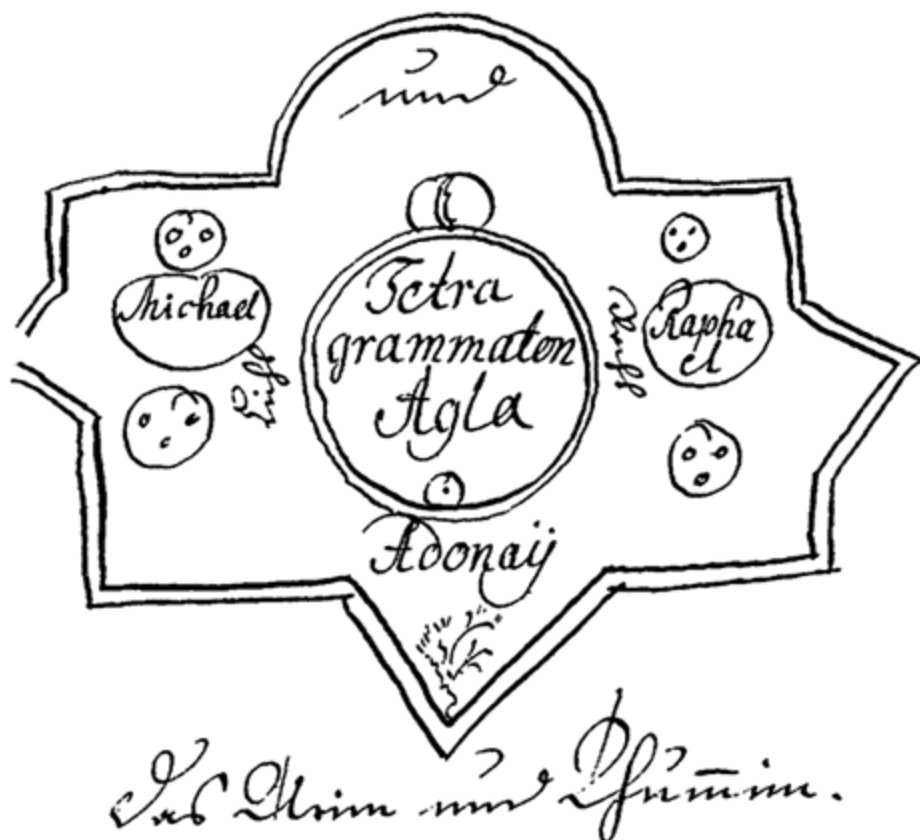 und
Michael
Tetra
grammaton
Agla
Rapha
el
Adonaij
Das Urim und Thum̅im.